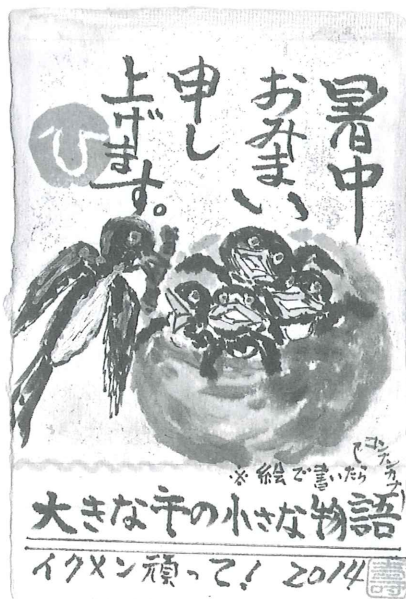 暑中
おみまい
申し
上げます。
ひ
※絵で書いたら
大きな の小さな物語
イクメン頑って! 2014
壽